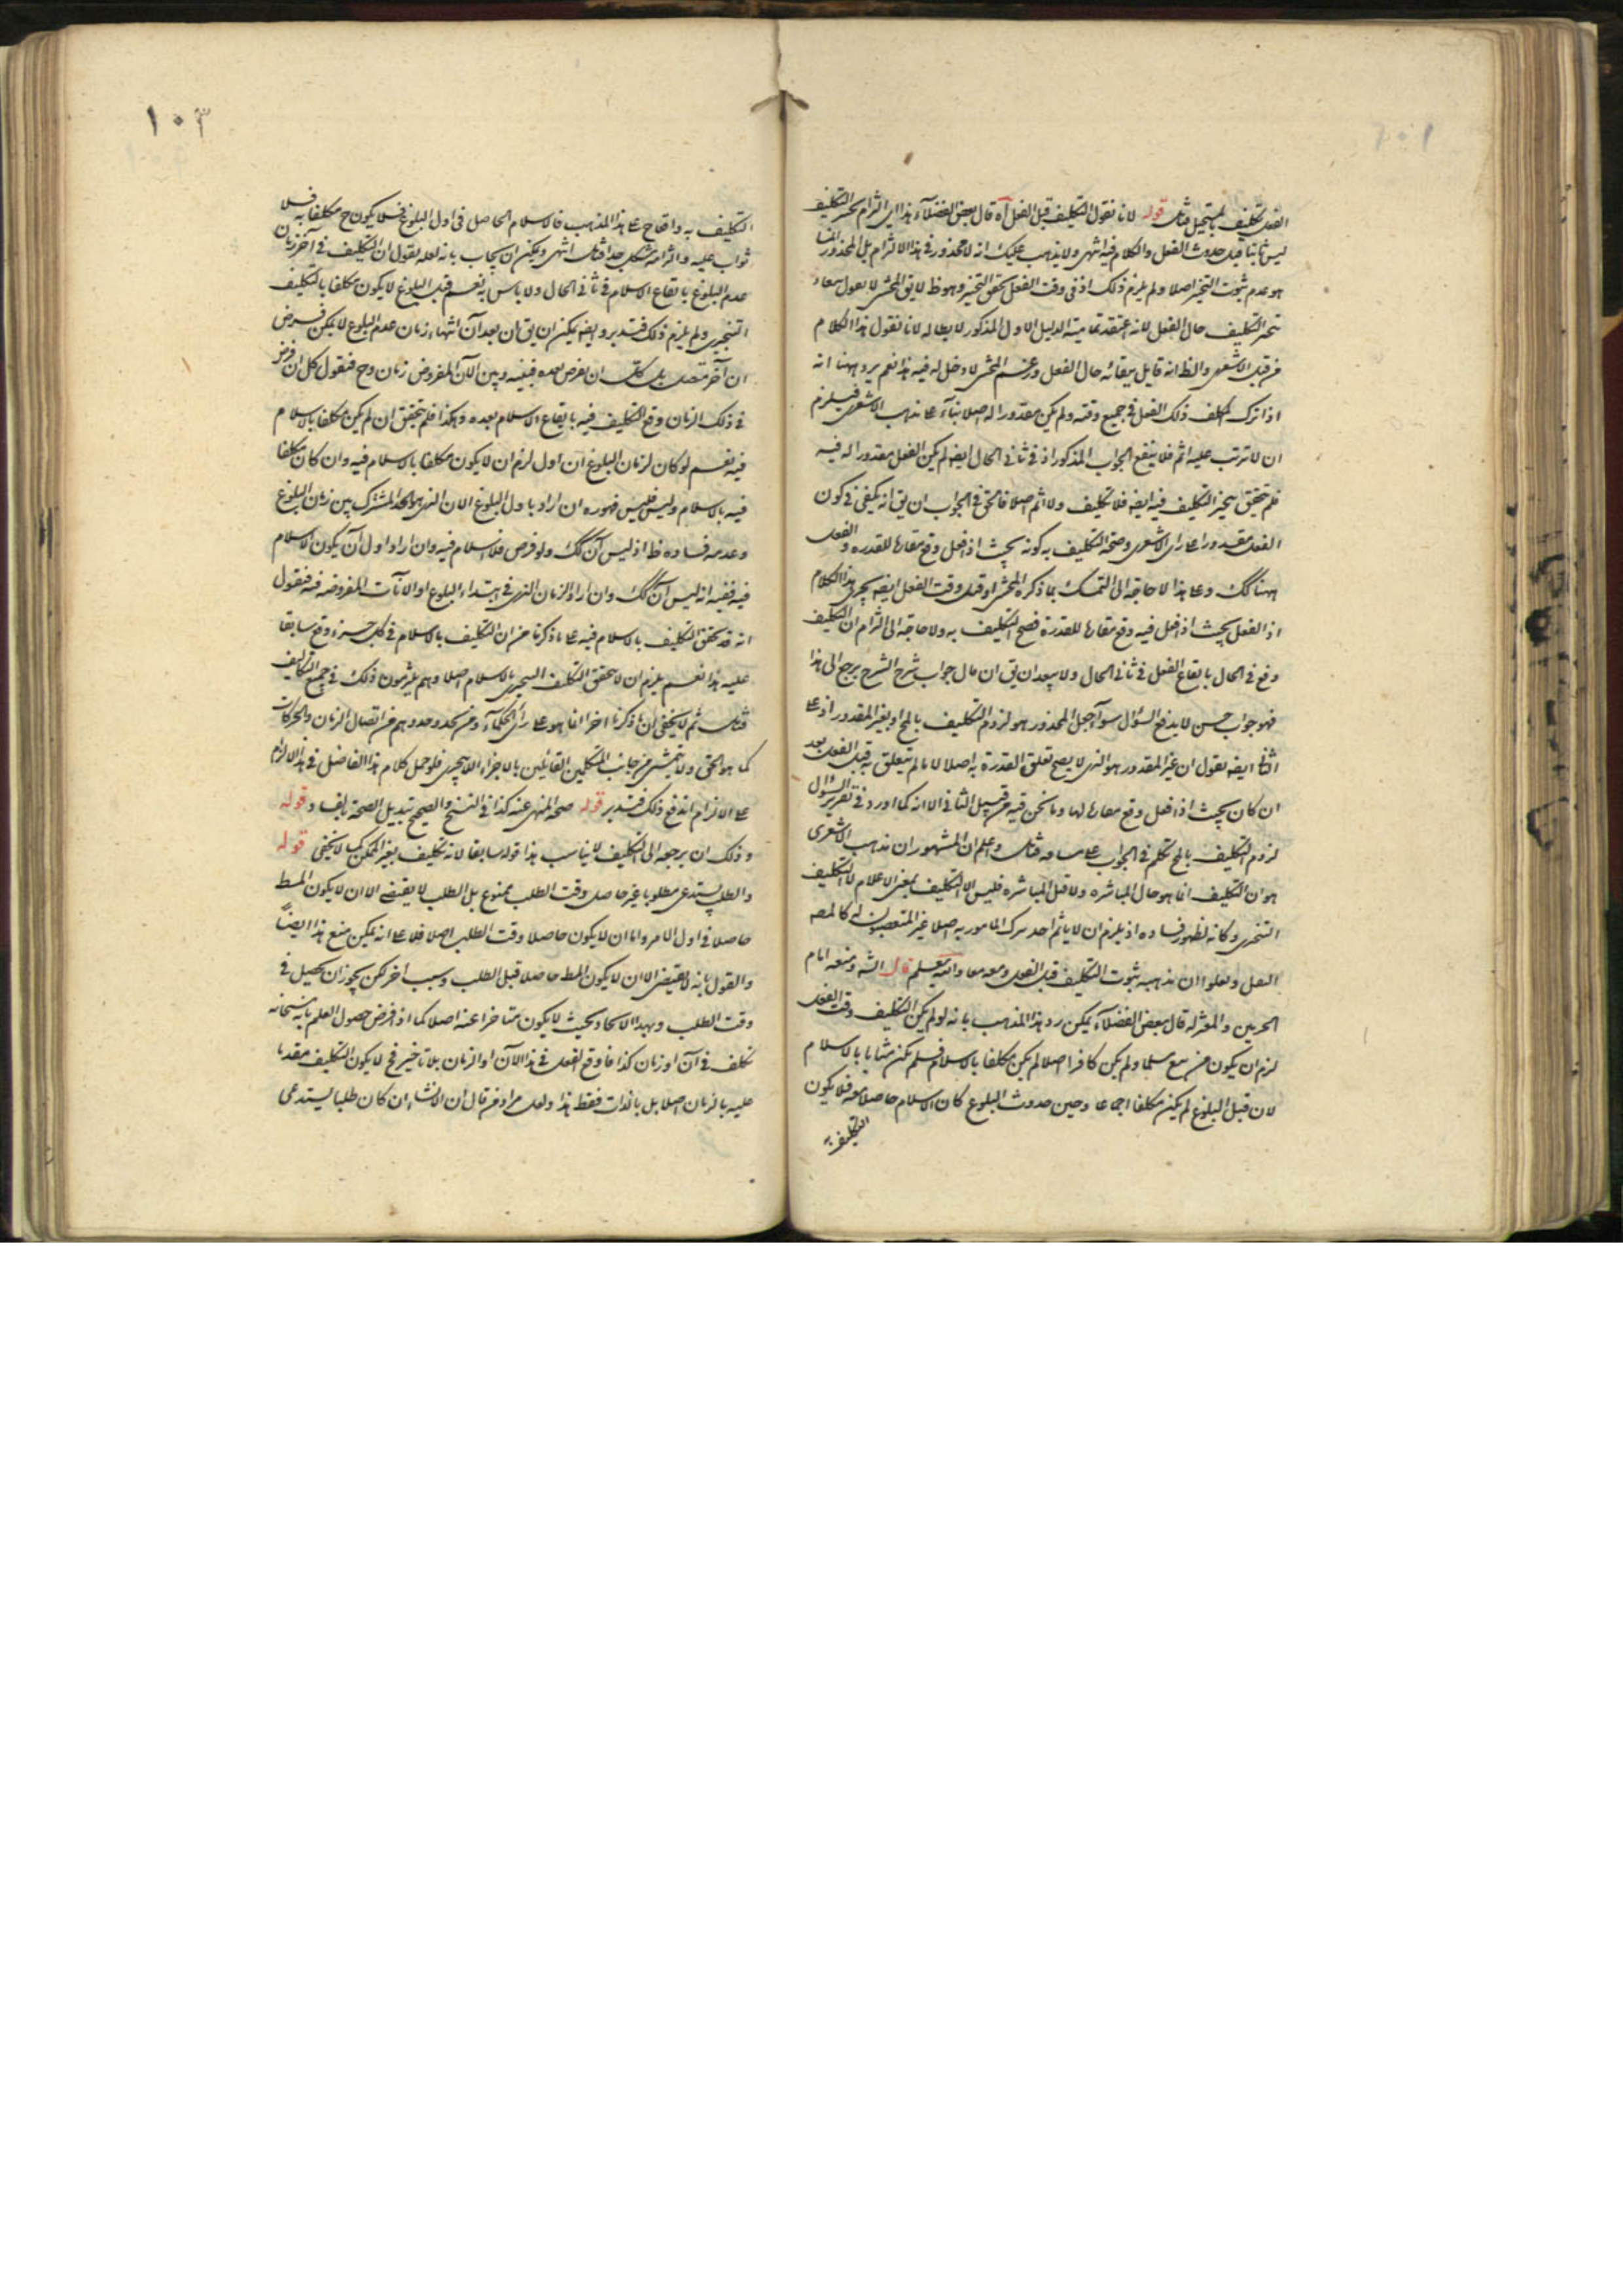 الفعل تكليف بالمستحيل فتامل قوله لانا نقول التكليف قبل الفعل آه قال بعض الفضلآء هذا اي التزام تنجيز التكليف
ليس ثابتا قبل حدوث الفعل والكلام فيه انتهى ولا يذهب عليك انه لا محذور في هذا الالتزام بل المحذور انما
هو عدم ثبوت التنجيز اصلا ولم يلزم ذلك اذ في وقت الفعل تحقق التنجيز وهو ظ لا يق المحشى لا يقول ببقاء
تنجيز التكليف حال الفعل لانه اعتقد تمامية الدليل الاول المذكور لابطاله لانا نقول هذا الكلام
من قبل الاشعرى والظ انه قايل ببقائه حال الفعل وزعم المحشى لا دخل له فيه هذا نعم يرد ههنا انه
اذا ترك المكلف ذلك الفعل في جميع وقته ولم يكن مقدورا له اصلا بناء على مذهب الاشعرى فيلزم
ان لا يترتب عليه اثم فلا ينفع الجواب المذكور اذ في ثاني الحال ايضا لم يكن الفعل مقدورا له فيه
فلم يتحقق تنجيز التكليف فيه ايضا فلا تكليف ولا اثم اصلا فالحق في الجواب ان يق انه يكفي في كون
الفعل مقدورا على راى الاشعرى وصحة التكليف به كونه بحيث اذا فعل وقع مقارنا للقدرة والفعل
ههنا كك وعلى هذا لا حاجة الى التمسك بما ذكره المحشى او قبل وقت الفعل ايضا يجرى هذا الكلام
اذ الفعل بحيث اذا فعل فيه وقع مقارنا للقدرة فصح التكليف به ولا حاجة الى التزام ان التكليف
وقع في الحال بايقاع الفعل في ثاني الحال ولا يبعد ان يق ان مال جواب شرح الشرح يرجع الى هذا
فهو جواب حسن لا يندفع السؤال سوآء جعل المحذور هو لزوم التكليف بالمح او بغير المقدور اذ على
الثاني ايضا نقول ان غير المقدور هو الذي لا يصح تعلق القدرة به اصلا لا ما لم يتعلق به قبل الفعل بعد
ان كان بحيث اذا فعل وقع مقارنا لها وما نحن فيه من قبيل الثاني الا انه كما اورد في تقرير السؤال
لزوم التكليف بالمح تكلم في الجواب على مساقه فتامل واعلم ان المشهور ان مذهب الاشعرى
هو ان التكليف انما هو حال المباشرة ولا قبل المباشرة فليس الا التكليف بمعنى الاعلام لا التكليف
التنجيزى وكانه لظهور فساده اذ يلزم ان لا ياثم احد بترك المامور به اصلا غير المتعصبون له كالمصه
النقل وتعلوا ان مذهبه ثبوت التكليف قبل الفعل ومعه معا والله يعلم قال الشه ومنعه امام
الحرمين والمعتزله قال بعض الفضلآء يمكن رد هذا المذهب بانه لو لم يكن التكليف وقت الفعل
لزم ان يكون من بلغ مسلما ولم يكن كافرا اصلا لم يكن مكلفا بالاسلام فلم يكن مثابا بالاسلام
لان قبل البلوغ لم يكن مكلفا اجماعا وحين حدوث البلوغ كان الاسلام حاصلا معه فلا يكون
التكليف به
١٠٣
التكليف به واقعا ح على هذا المذهب فالاسلام الحاصل في اول البلوغ فلا يكون ح مكلفا به فلا
ثواب عليه والتزامه مشكل جدا فتامل انتهى ويمكن ان يجاب بانه لعله يقول ان التكليف في آخر زمان
عدم البلوغ بايقاع الاسلام في ثاني الحال ولا باس به نعم قبل البلوغ لا يكون مكلفا بالتكليف
التنجيزى ولم يلزم ذلك فتدبر وايضا يمكن ان يق ان بعد آن انتهاء زمان عدم البلوغ لا يمكن فرض
ان آخر متصل به بل كل ان يفرض بعده فبينه وبين الآن المفروض زمان وح فنقول كل ان فرض
في ذلك الزمان وقع التكليف فيه بايقاع الاسلام بعده وهكذا فلم يتحقق ان لم يكن مكلفا بالاسلام
فيه نعم لو كان لزمان البلوغ ان اول لزم ان لا يكون مكلفا بالاسلام فيه وان كان مكلفا
فيه بالاسلام وليس فليس فهوره ان اراد باول البلوغ الان الذي هو الحد المشترك بين زمان البلوغ
وعدمه ففساده ظ اذ ليس آن كك ولو فرض فلا اسلام فيه وان اراد اول آن يكون الاسلام
فيه ففيه انه ليس آن كك وان اراد الزمان الذي في ابتداء البلوغ او الآنات المفروضه فيه فنقول
انه قد تحقق التكليف بالاسلام فيه على ما ذكرنا من ان التكليف بالاسلام في كل جزء وقع سابقا
عليه هذا نعم يلزم ان لا يتحقق التكليف التنجيزى بالاسلام اصلا وهم يلتزمون ذلك في جميع التكاليف
فتامل ثم لا يخفى ان ما ذكرنا اخرا انما هو على راى الحكمآء ومن يحذو حذوهم من اتصال الزمان والحركات
كما هو الحق ولا يتمشى من جانب المتكلمين القائلين بالاجزاء التي لا تتجزى فلو حمل كلام هذا الفاضل في هذا الالزام
على الالزام اندفع ذلك فتدبر قوله صحه المنهى عنه كذا في النسخ والصحيح تبديل الصحة بالف وقوله
وذلك ان يرجعه الى التكليف لا يناسب هذا قوله سابقا لانه تكليف بغير الممكن كما لا يخفى قوله
والطلب يستدعى مطلوبا غير حاصل وقت الطلب ممنوع بل الطلب لا يقتضى الا ان لا يكون المط
حاصلا في اول الامر واما ان لا يكون حاصلا وقت الطلب اصلا فلا على انه يمكن منع هذا ايضاً
والقول بانه لا يقتضى الا ان لا يكون المط حاصلا قبل الطلب وسبب آخر لكن يجوز ان يحصل في
وقت الطلب وبهذا الايجاد بحيث لا يكون متاخرا عنه اصلا كما اذا فرض حصول العلم بانه سبحانه
يكلف في آن او زمان كذا فاوقع الفعل في هذا الآن او الزمان بلا تاخير فح لا يكون التكليف مقدما
عليه بالزمان اصلا بل بالذات فقط هذا ولعل مراد من قال ان الانشاء ان كان طلبا يستدعى